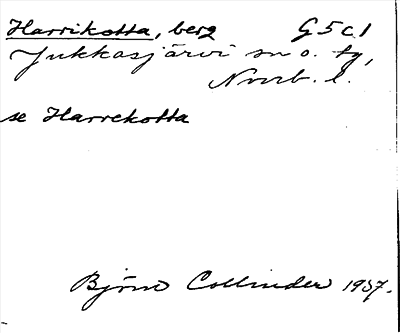 Harrikotta, berg G5c1
Jukkasjärvi sn o. tg,
Norrb. l.
se Harrekotta
Björn Collinder 1937.